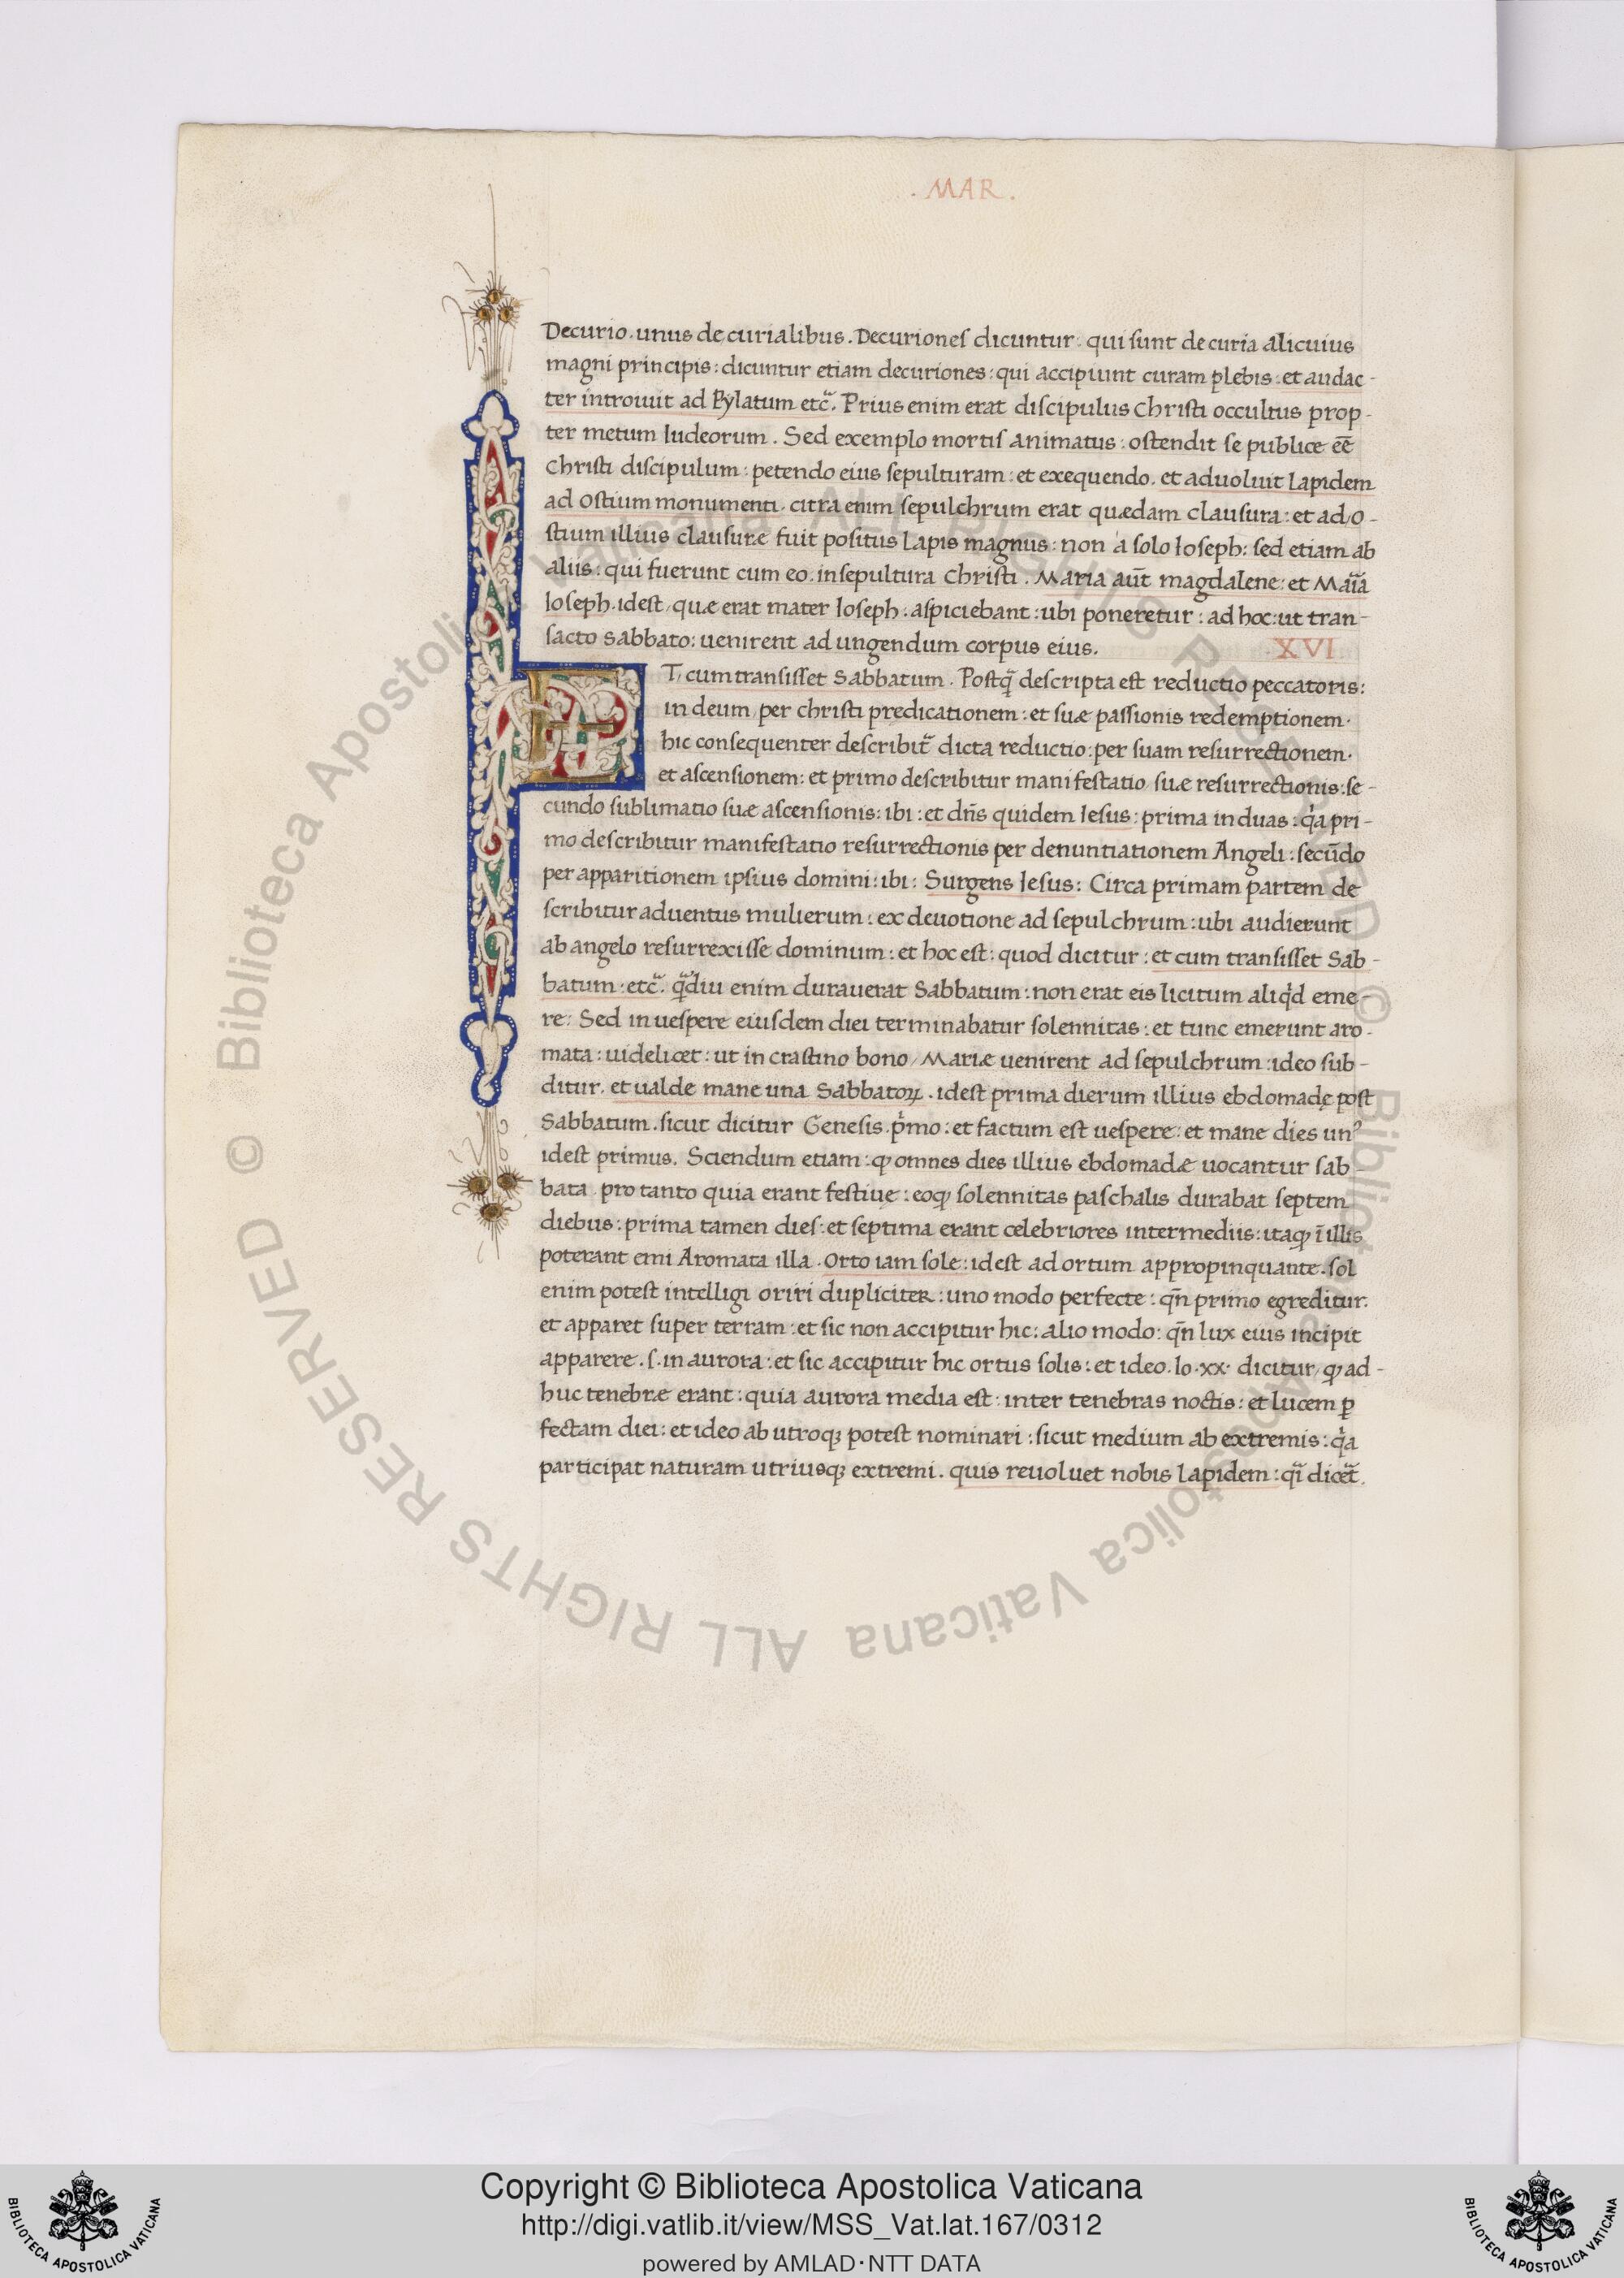 . MAR .
Decurio. unus de curialibus. Decurionef dicuntur: qui sunt de curia alicuius
magni principis: dicuntur etiam decuriones: qui accipiunt curam plebis: et audac-
ter introiuit ad Pylatum etc̃. Prius enim erat discipulus Christi occultus prop-
ter metum Iudeorum. Sed exemplo mortis animatus: ostendit se publice eē
Christi discipulum: petendo eius sepulturam: et exequendo. et aduoluit Lapidem
ad Ostium monumenti. citra enim sepulchrum erat quædam clausura: et ad o-
stium illius clausuræ fuit positus Lapis magnus: non a solo Ioseph: sed etiam ab
aliis: qui fuerunt cum eo. in sepultura Christi. Maria aut̃ magdalene: et Maĩa
Ioseph. idest, quæ erat mater Ioseph: aspiciebant: ubi poneretur: ad hoc: ut tran-
sacto sabbato: uenirent ad ungendum corpus eius.
XVI
ET cum transisset Sabbatum. Postq̃ descripta est reductio peccatoris:
in deum, per christi predicationem: et suæ passionis redemptionem.
hic consequenter describit̃ dicta reductio: per suam resurrectionem.
et ascensionem: et primo describitur manifestatio suæ resurrectionis: se-
cundo sublimatio suæ ascensionis: ibi: et dñs quidem Iesus: prima in duas: q̓a pri-
mo describitur manifestatio resurrectionis per denuntiationem Angeli: secūdo
per apparitionem ipsius domini: ibi: Surgens Iesus: Circa primam partem de
scribitur aduentus mulierum: ex deuotione ad sepulchrum: ubi audierunt
ab angelo resurrexisse dominum: et hoc est: quod dicitur: et cum transisset Sab-
batum: etc̃. q̃diu enim durauerat Sabbatum: non erat eis licitum aliq̓d eme-
re: Sed in uespere eiusdem diei terminabatur solennitas: et tunc emerunt aro-
mata: uidelicet: ut in crastino bono, Mariæ uenirent ad sepulchrum: ideo sub-
ditur. et ualde mane una Sabbatoꝝ. idest prima dierum illius ebdomadę post
Sabbatum. sicut dicitur Genesis. p̓mo: et factum est uespere: et mane dies unꝰ
idest primus. Sciendum etiam: ꝙ omnes dies illius ebdomadæ uocantur sab-
bata. pro tanto quia erant festiuę: eoꝙ solennitas paschalis durabat septem
diebus: prima tamen dies: et septima erant celebriores intermediis: itaꝙ ī illis
poterant emi Aromata illa. Orto iam sole: idest ad ortum appropinquante. sol
enim potest intelligi oriri dupliciter: uno modo perfecte: qn̄ primo egreditur.
et apparet super terram: et sic non accipitur hic: alio modo: qn̄ lux eius incipit
apparere. s. in aurora: et sic accipitur hic ortus solis: et ideo. Io. xx. dicitur, ꝙ ad-
huc tenebræ erant: quia aurora media est: inter tenebras noctis: et lucem ꝑ
fectam diei: et ideo ab utroqꝫ potest nominari: sicut medium ab extremis: q̓a
participat naturam utriusqꝫ extremi. quis reuoluet nobis Lapidem: qĩ dicet̃.
© Biblioteca Apostolica Vaticana ALL RIGHTS RESERVED
© Biblioteca Apostolica Vaticana ALL RIGHTS RESERVED
Copyright © Biblioteca Apostolica Vaticana
http://digi.vatlib.it/view/MSS_Vat.lat.167/0312
powered by AMLAD·NTT DATA
BIBLIOTECA APOSTOLICA VATICANA
BIBLIOTECA APOSTOLICA VATICANA